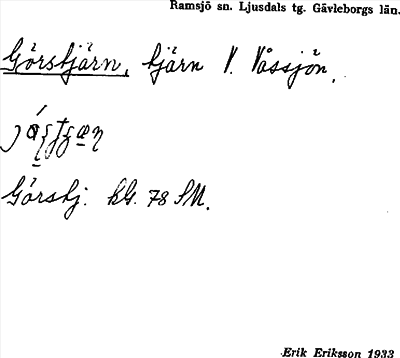 Ramsjö sn. Ljusdals tg. Gävleborgs län.
Görstjärn, tjärn V. Våssjön.
Görstj. kG. 78 SM.
Erik Eriksson 1933